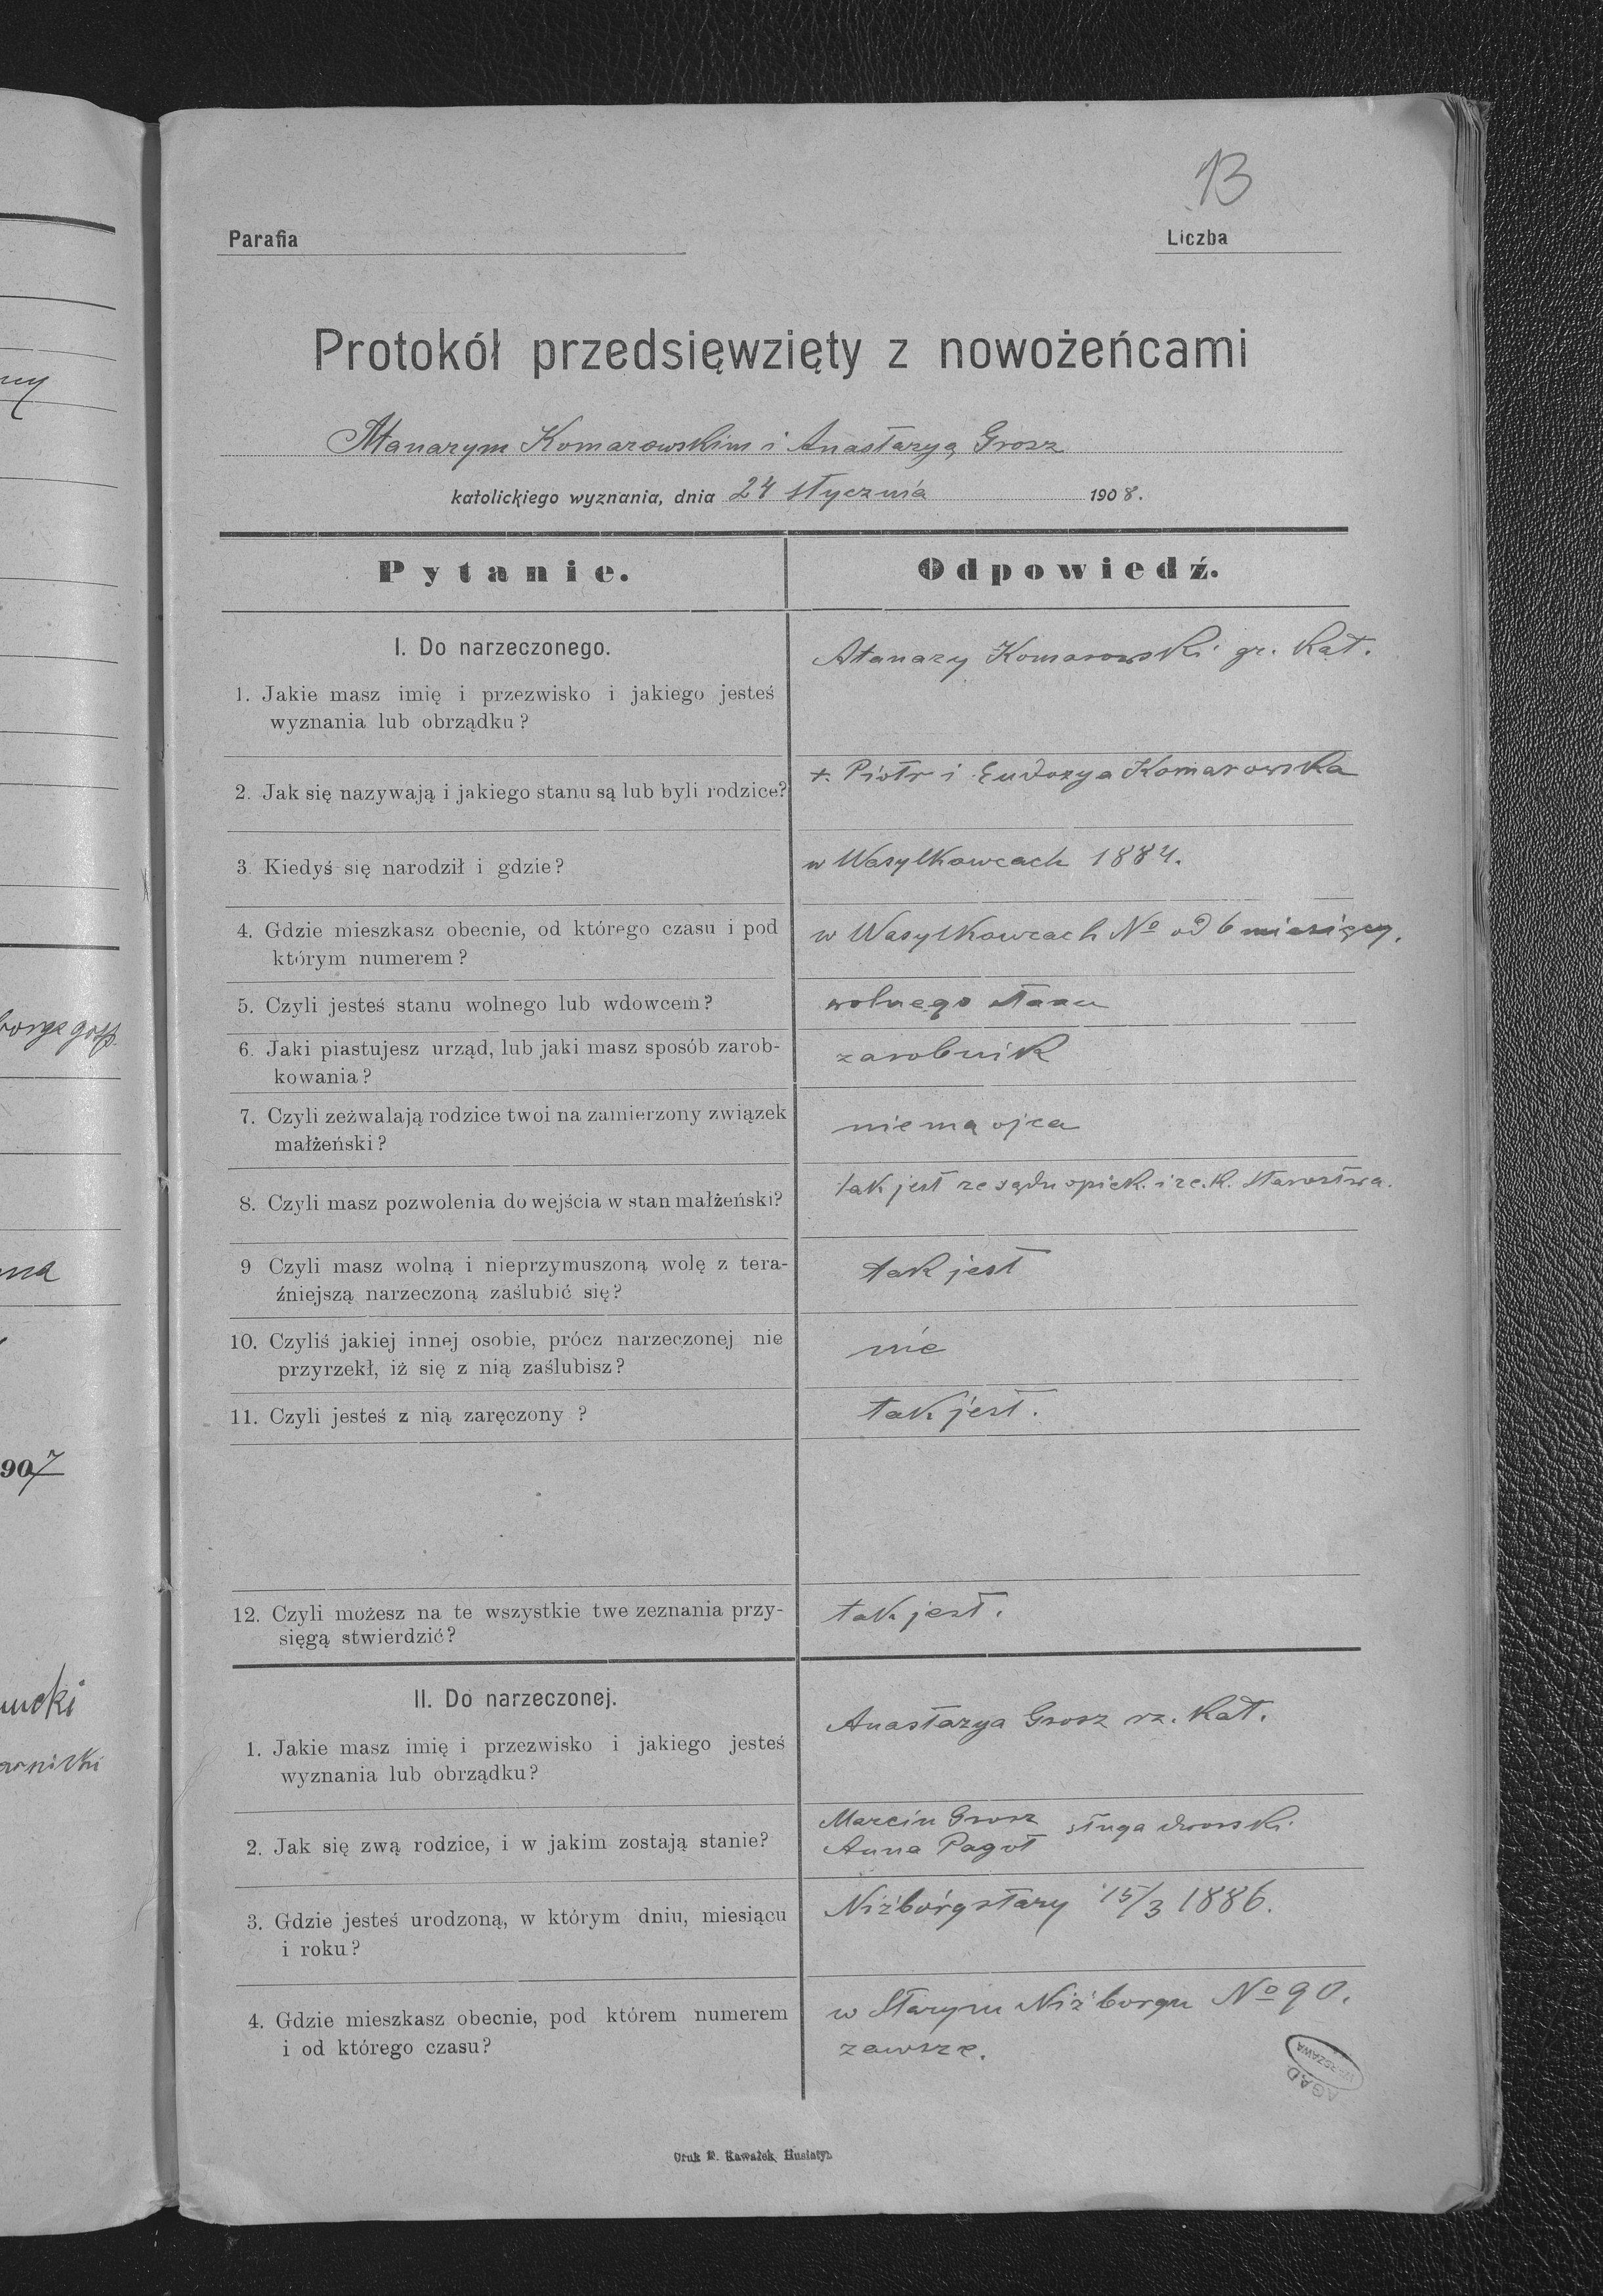 13
Parafia
Liczba
Protokół przedsięwzięty z nowożeńcami
Atanazym Komarowskim i Anastazyą Grosz
katolickiego wyznania, dnia 24 stycznia 1908.
Pytanie.
Odpowiedź.
I. Do narzeczonego.
1. Jakie masz imię i przezwisko i jakiego jesteś
wyznania lub obrządku?
Atanazy Komarowski gr. kat.
2. Jak się nazywają i jakiego stanu są lub byli rodzice?
+. Piotr i Eudozya Komarowska
3. Kiedyś się narodził i gdzie?
w Wasylkowcach 1884.
4. Gdzie mieszkasz obecnie, od którego czasu i pod
którym numerem?
w Wasylkowcach No od 6 miesięcy.
5. Czyli jesteś stanu wolnego lub wdowcem?
wolnego stanu
6. Jaki piastujesz urząd, lub jaki masz sposób zarob-
kowania?
zarobnik
7. Czyli zeżwalają rodzice twoi na zamierzony związek
małżeński?
nie ma ojca
8. Czyli masz pozwolenia do wejścia w stan małżeński?
tak jest ze sądu opiek. i ze.k. starostwa.
9 Czyli masz wolną i nieprzymuszoną wolę z tera-
źniejszą narzeczoną zaślubić się?
tak jest
10. Czyliś jakiej innej osobie, prócz narzeczonej nie
przyrzekł, iż się z nią zaślubisz?
nie
11. Czyli jesteś z nią zaręczony ?
tak jest.
12. Czyli możesz na te wszystkie twe zeznania przy-
sięgą stwierdzić?
tak jest.
II. Do narzeczonej.
1. Jakie masz imię i przezwisko i jakiego jesteś
wyznania lub obrządku?
Anastazya Grosz rz. kat.
2. Jak się zwą rodzice, i w jakim zostają stanie?
Marcin Grosz sługa dworski.
Anna Pagot
3. Gdzie jesteś urodzoną, w którym dniu, miesiącu
i roku?
Niżbórg stary 15/3 1886.
4. Gdzie mieszkasz obecnie, pod którem numerem
i od którego czasu?
w Starym Niżborgu No 90.
zawsze.
AGAD
WARSZAWA
Druk P. Kawałek, Husiatyn
ny
gosp.
907